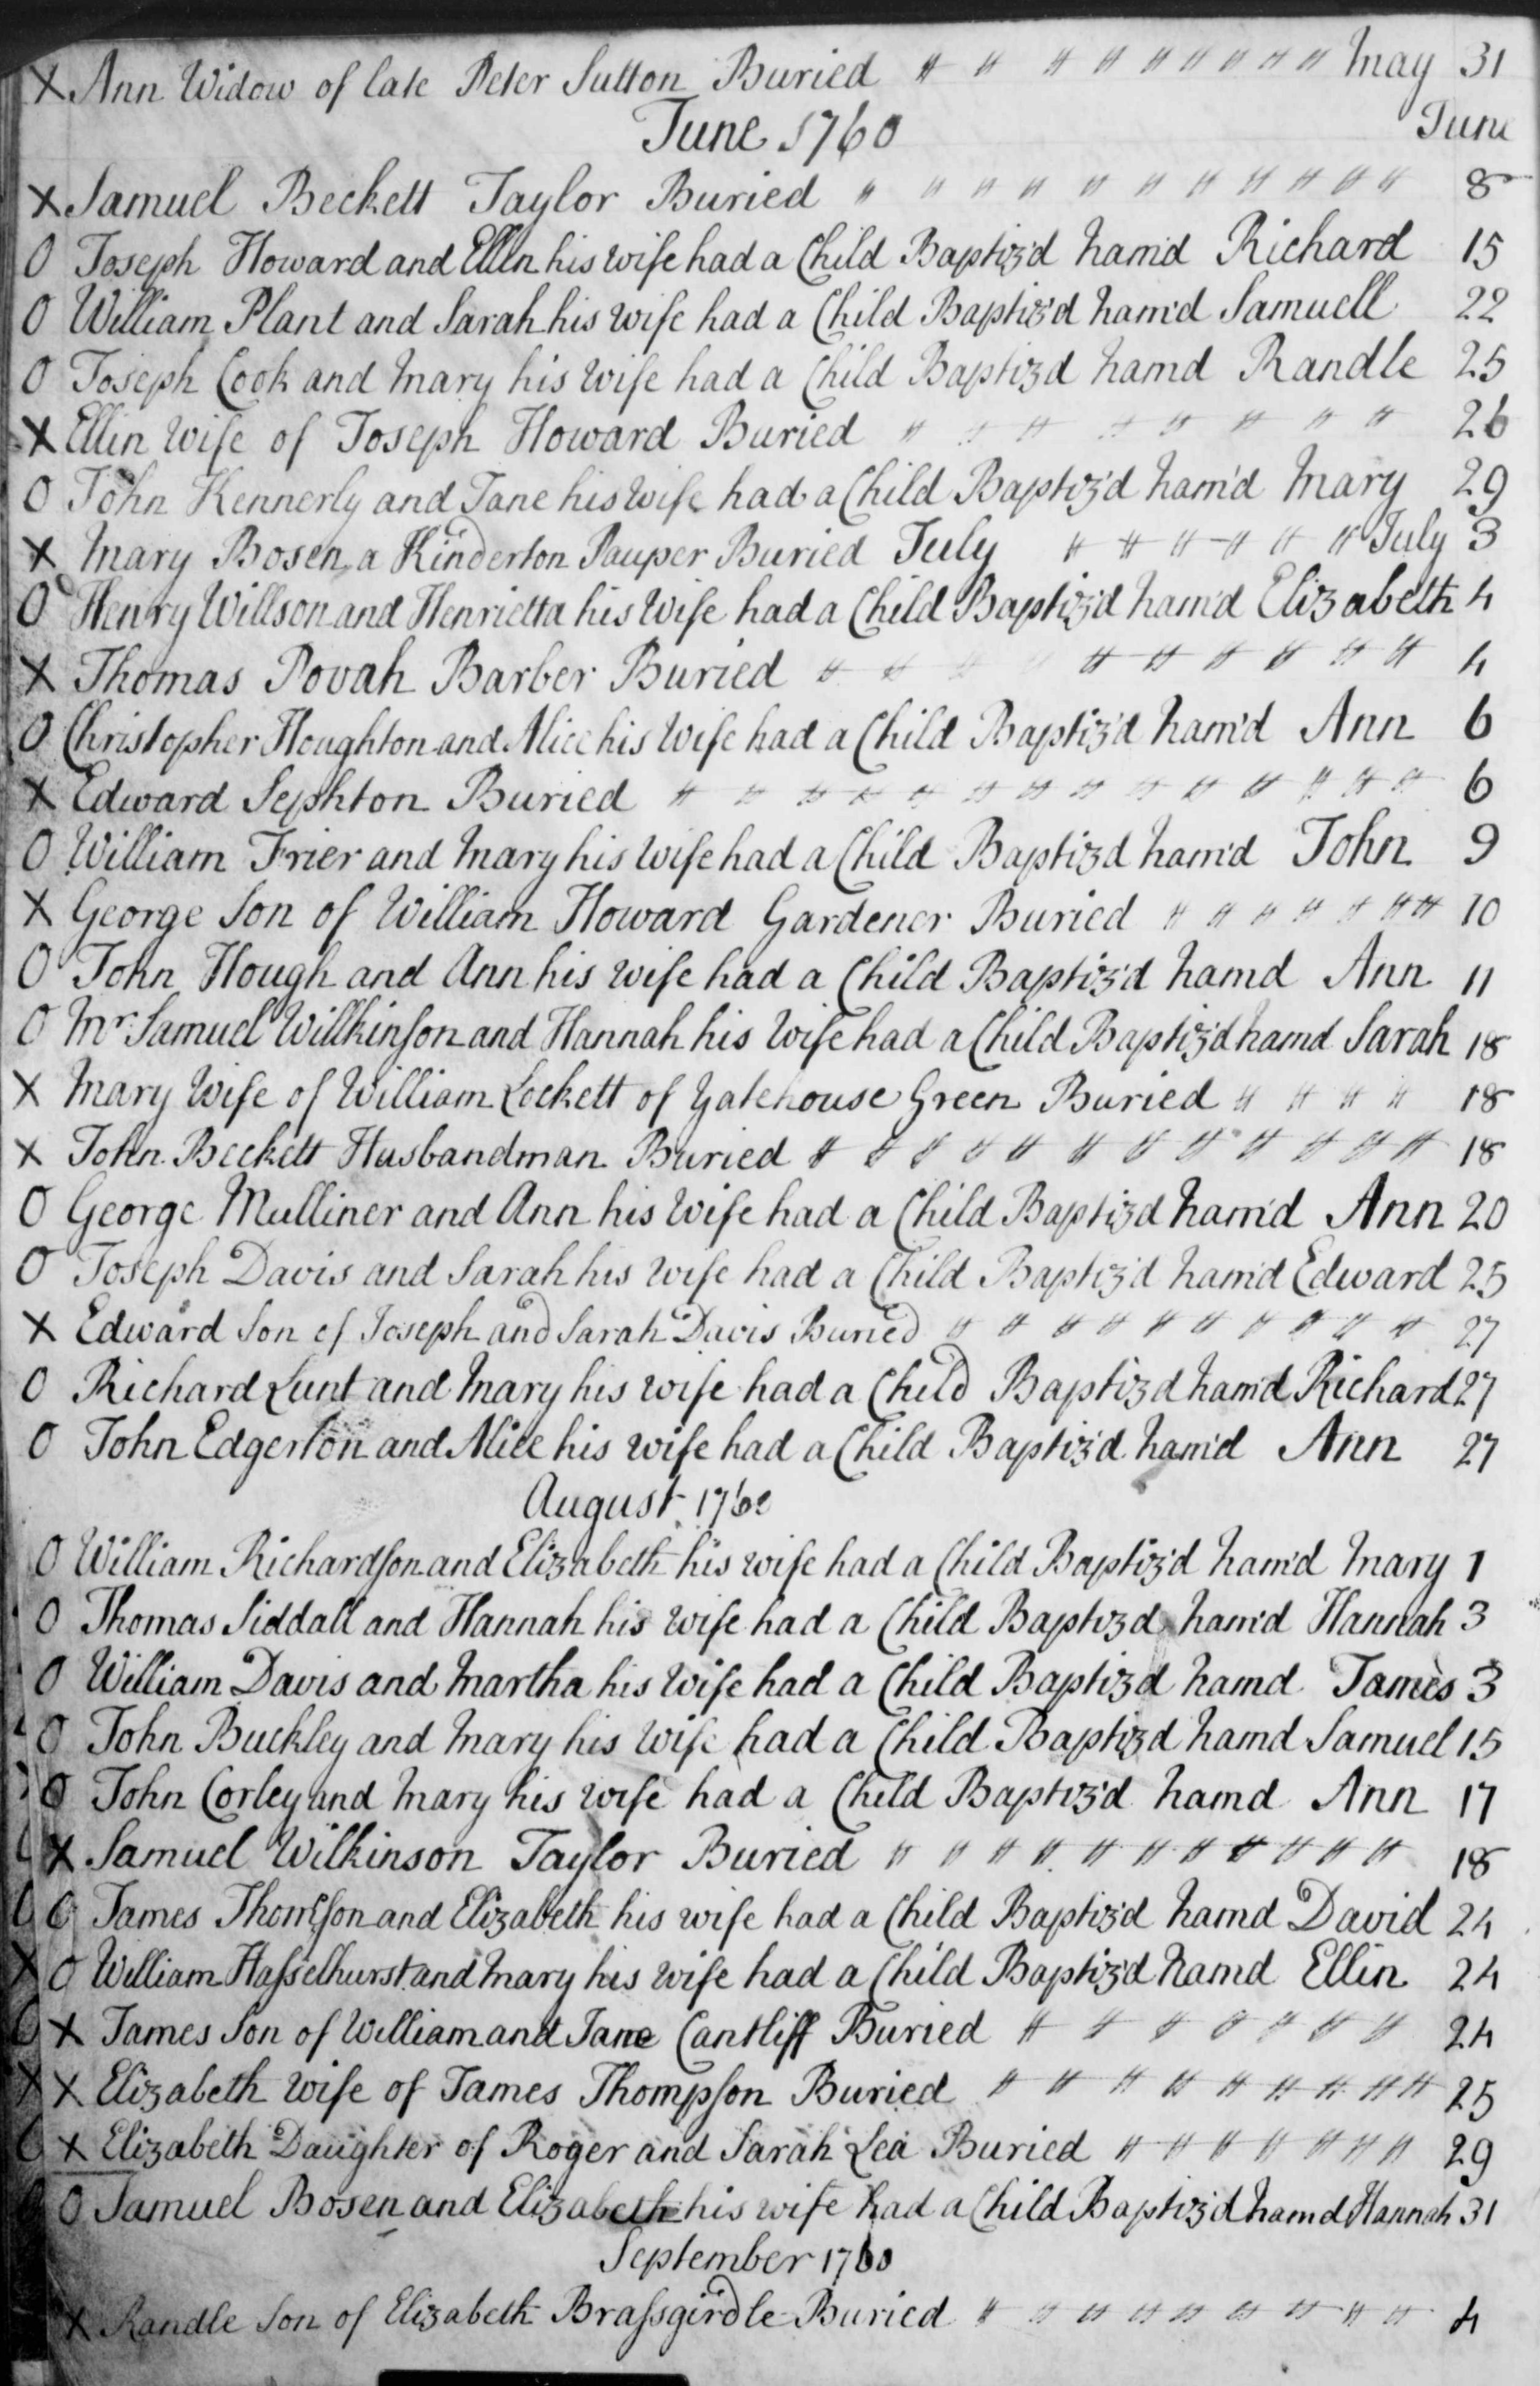 X Ann Widow of late Peter Sutton Buried " " " " " " " " " May 31
June 1760 June
X Samuel Beckett Taylor Buried " " " " " " " " " " " 8
O Joseph Howard and Ellin his wife had a Child Baptiz'd nam'd Richard 15
O William Plant and Sarah his wife had a Child Baptiz'd nam'd Samuell 22
O Joseph Cook and Mary his wife had a Child Baptizd namd Randle 25
X Ellin Wife of Joseph Howard Buried " " " " " " " " 26
O John Kennerly and Jane his wife had a Child Baptiz'd nam'd Mary 29
X Mary Bosen a Kinderton Pauper Buried July " " " " " " July 3
O Henry Willson and Henrietta his Wife had a Child Baptiz'd nam'd Elizabeth 4
X Thomas Povah Barber Buried " " " " " " " " " " 4
O Christopher Houghton and Alice his Wife had a Child Baptiz'd nam'd Ann 6
X Edward Sephton Buried " " " " " " " " " " " " " " 6
O William Frier and Mary his Wife had a Child Baptizd nam'd John 9
X George Son of William Howard Gardener Buried " " " " " " " 10
O John Hough and Ann his wife had a Child Baptiz'd namd Ann 11
O Mr. Samuel Willkinſon and Hannah his Wife had a Child Baptiz'd namd Sarah 18
X Mary Wife of William Lockett of Yatehouse Green Buried " " " " 18
X John Beckett Husbandman Buried " " " " " " " " " " " " 18
O George Mulliner and Ann his Wife had a Child Baptizd nam'd Ann 20
O Joseph Davis and Sarah his wife had a Child Baptiz'd nam'd Edward 25
X Edward Son of Joseph and Sarah Davis Buried " " " " " " " " " " 27
O Richard Lunt and Mary his wife had a Child Baptizd nam'd Richard 27
O John Edgerton and Alice his wife had a Child Baptiz'd nam'd Ann 27
August 1760
O William Richardſon and Elizabeth his wife had a Child Baptiz'd nam'd Mary 1
O Thomas Siddall and Hannah his wife had a Child Baptizd nam'd Hannah 3
O William Davis and Martha his Wife had a Child Baptizd namd James 3
O John Buckley and Mary his Wife had a Child Baptizd namd Samuel 15
O John Corley and Mary his wife had a Child Baptiz'd namd Ann 17
X Samuel Wilkinson Taylor Buried " " " " " " " " " " " 18
O James Thomſon and Elizabeth his wife had a Child Baptiz'd namd David 24
O William Haſselhurst and Mary his wife had a Child Baptiz'd namd Ellin 24
X James Son of William and Jane Cantliff Buried " " " " " " " 24
X Elizabeth Wife of James Thompſon Buried " " " " " " " " " 25
X Elizabeth Daughter of Roger and Sarah Lea Buried " " " " " " " " 29
O Samuel Bosen and Elizabeth his wife had a Child Baptiz'd namd Hannah 31
September 1760
X Randle Son of Elizabeth Braſsgirdle Buried " " " " " " " " " 4